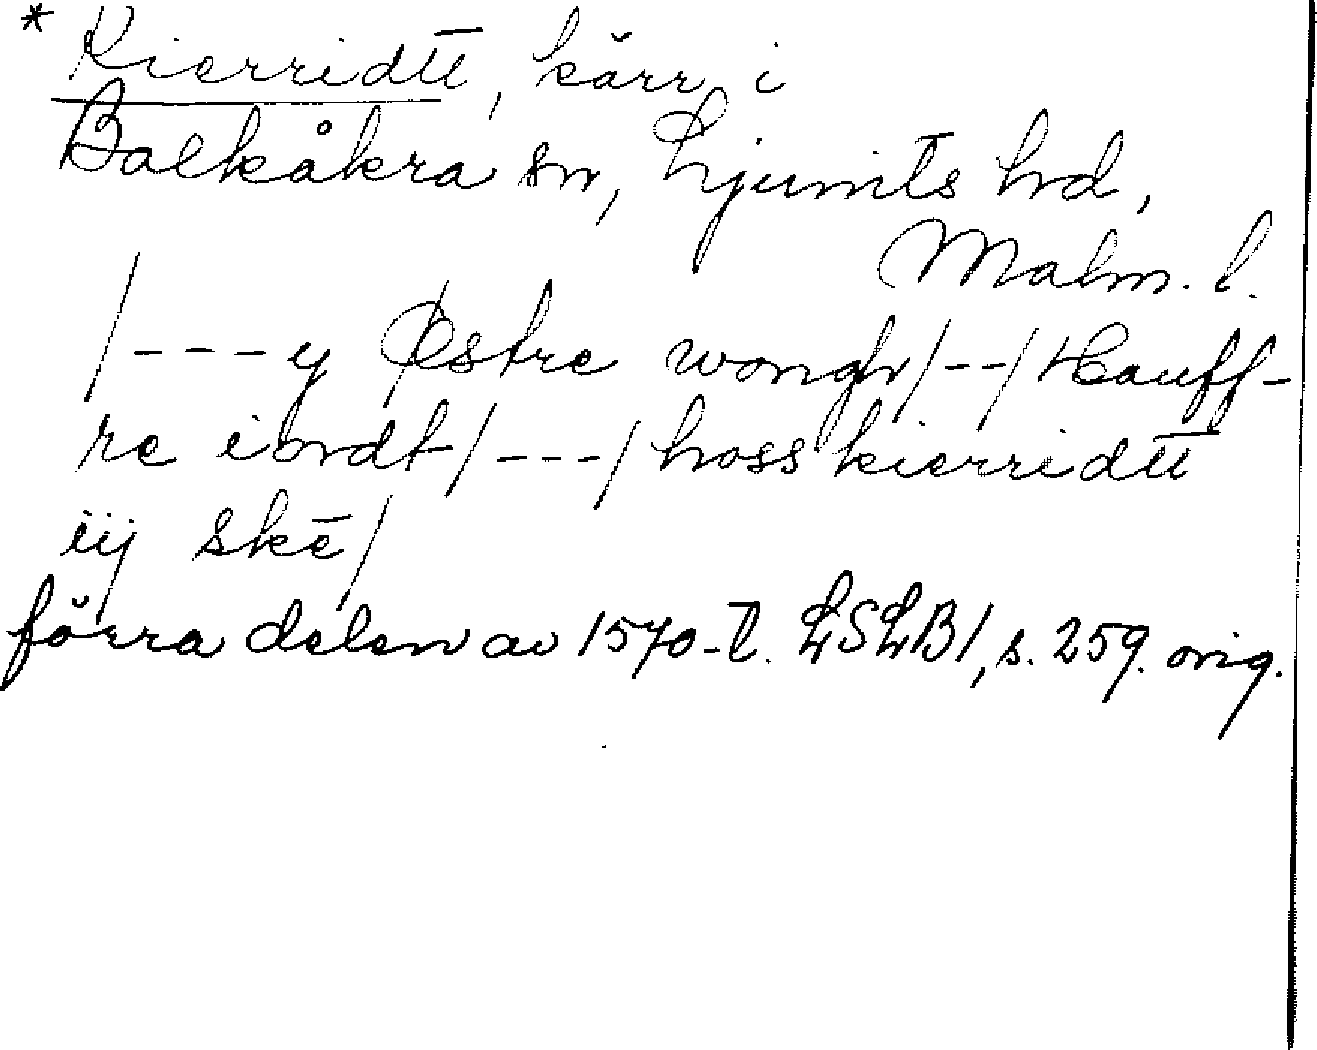 * Kierridtt, kärr i
Balkåkra sn, Ljunits hd,
Malm. l.
/---y Østre wongh/--/Hauff-
re iordt/---/hoss kierridtt
iij skē/
förra delen av 1570-t. LSLB1, s. 259. orig.